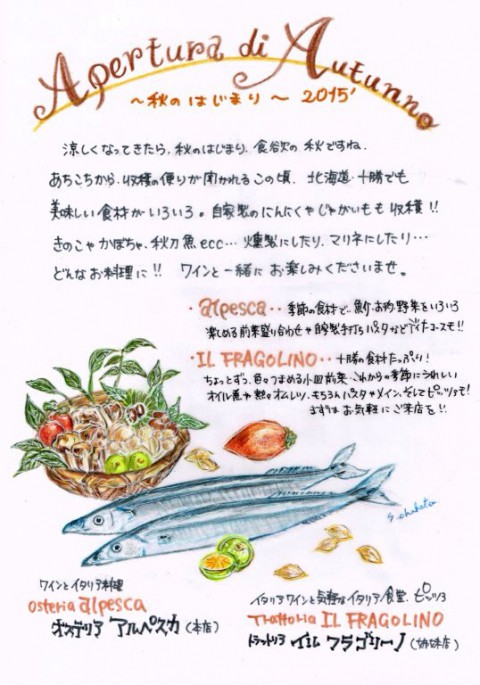 Apertura di Autunno
～秋のはじまり～ 2015'
涼しくなってきたら、秋のはじまり、食欲の秋ですね。
あちこちから、収穫の便りが聞かれるこの頃、北海道・十勝でも
美味しい食材がいろいろ。自家製のにんにくやじゃがいもも収穫!!
きのこやかぼちゃ、秋刀魚ecc… 燻製にしたり、マリネにしたり…
どんなお料理に!! ワインと一緒にお楽しみくださいませ。
・alpesca・・季節の食材で、魚介・お肉・野菜をいろいろ
楽しめる前菜盛り合わせや自家製手打ちパスタなどディナーコースも!!
・IL FRAGOLINO・・十勝の食材たっぷり!
ちょっとずつ、色々つまめる小皿前菜、これからの季節にうれしい
オイル煮や熱々オムレツ、もちろんパスタやメイン、そしてピッツァまで
まずはお気軽にご来店を!!
ワインとイタリア料理
osteria alpesca
オステリア アルペスカ (本店)
イタリアワインと気軽なイタリア食堂、ピッツァ
Trattoria IL FRAGOLINO
トラットリア イル フラゴリーノ (姉妹店)